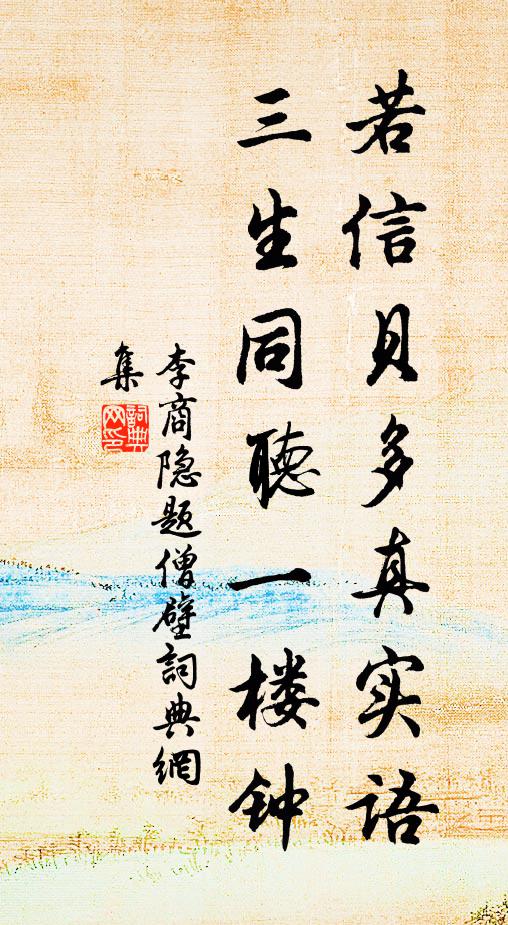 若信贝多真实语
三生同聽一楼钟
李商隐题僧壁詞典網
集
詞典
网印